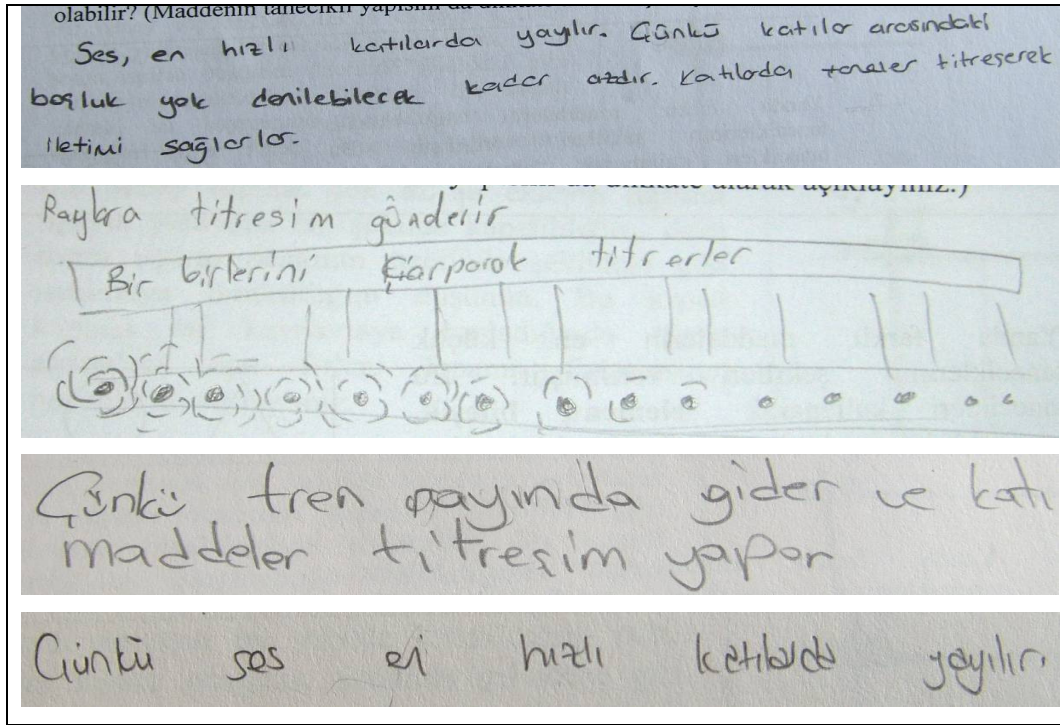 olabilir? (Maddenin tanecikli yapısını da
Ses, en hızlı katılarda yayılır. Çünkü katılar arasındaki
boşluk yok denilebilecek kadar azdır. Katılarda taneler titreşerek
iletimi sağlarlar.
alarak açıklayınız.)
Raylara titresim gönderir
Bir birlerini Çarparak titrerler
Çünkü tren rayında gider ve katı
maddeler titreşim yapar
Çünkü ses en hızlı katılarda yayılır.